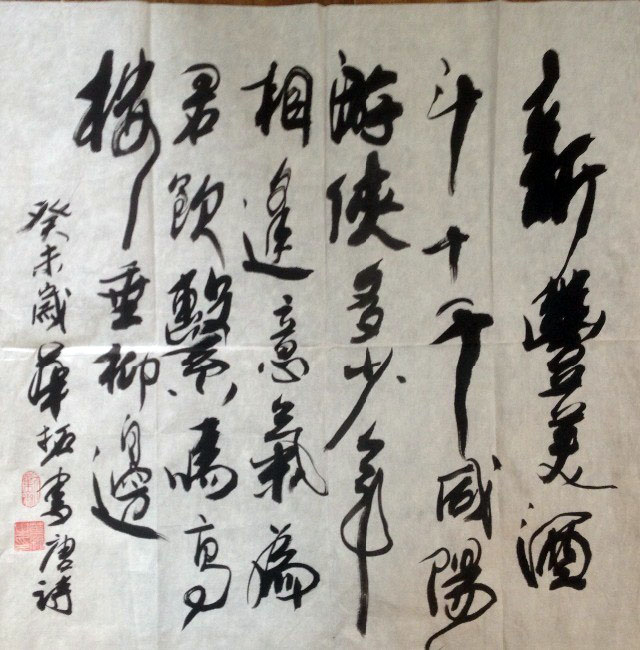 新豐美酒
斗十千咸陽
游俠多少年
相逢意氣為
君飲繫馬高
樓垂柳邊
癸未歲華拓書唐詩